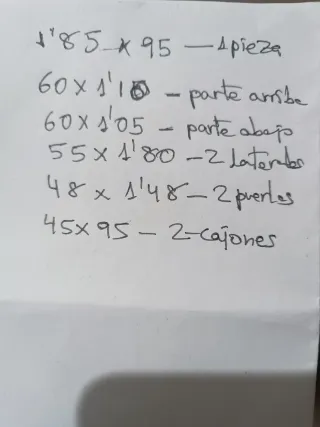 1'85 x 95 — 1 pieza
60 x 1'10 — parte arriba
60 x 1'05 — parte abajo
55 x 1'80 — 2 laterales
48 x 1'48 — 2 puertas
45 x 95 — 2 - cajones